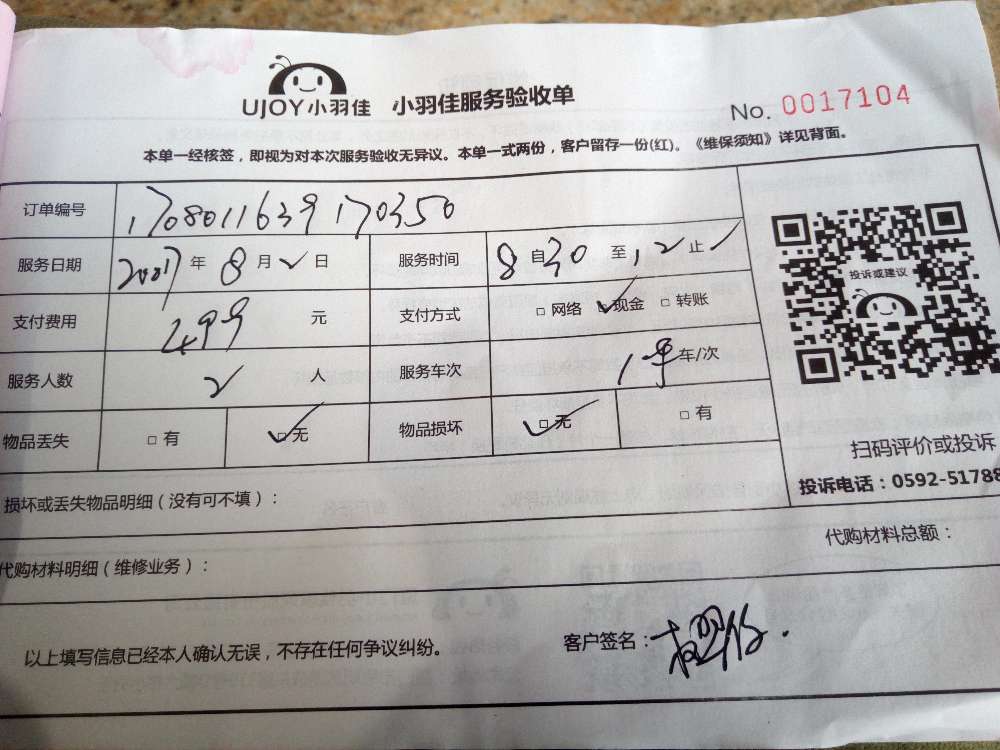 UJOY小羽佳 小羽佳服务验收单
No. 0017104
本单一经核签，即视为对本次服务验收无异议。本单一式两份，客户留存一份(红)。《维保须知》详见背面。
订单编号 170801163917 0350
服务日期 2017 年 8 月 2 日 服务时间 8 自 30 至 12 止
支付费用 299 元 支付方式 □网络 ✓现金 □转账
投诉或建议
服务人数 2 人 服务车次 1 车/次
物品丢失 □有 ☑无 物品损坏 ☑无 □有
扫码评价或投诉
投诉电话：0592-51788
损坏或丢失物品明细（没有可不填）：
代购材料总额：
代购材料明细（维修业务）：
以上填写信息已经本人确认无误，不存在任何争议纠纷。
客户签名：